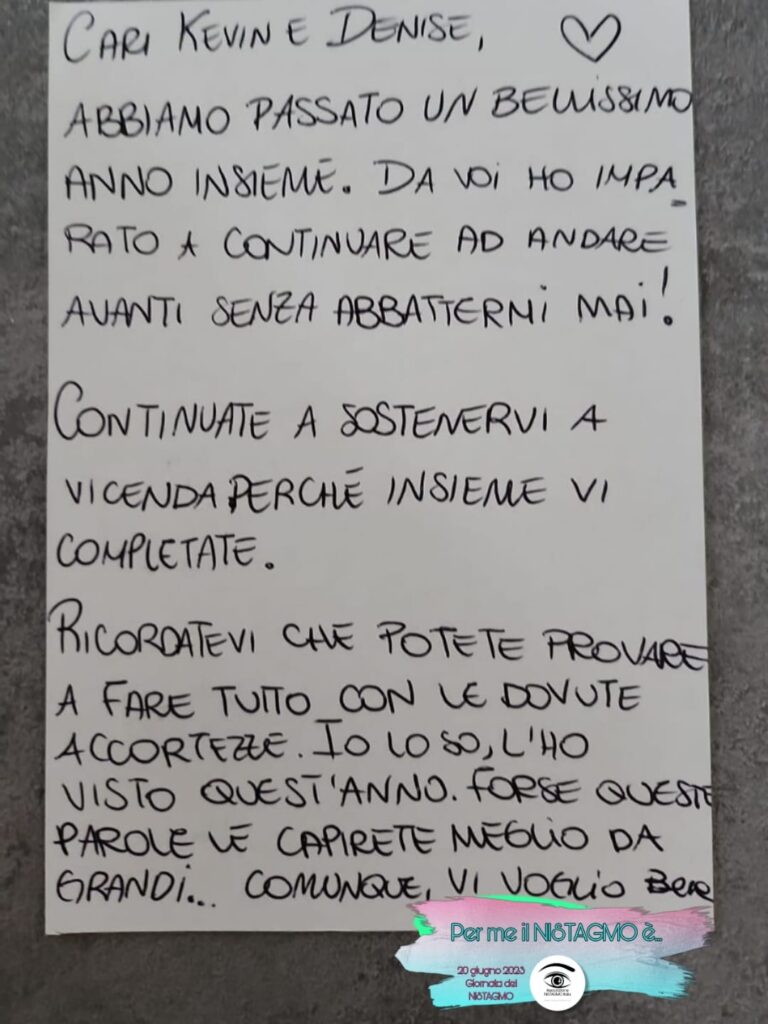 CARI KEVIN E DENISE,
ABBIAMO PASSATO UN BELLISSIMO
ANNO INSIEME. DA VOI HO IMPA_
RATO A CONTINUARE AD ANDARE
AVANTI SENZA ABBATTERMI MAI!
CONTINUATE A SOSTENERVI A
VICENDA PERCHÉ INSIEME VI
COMPLETATE.
RICORDATEVI CHE POTETE PROVARE
A FARE TUTTO CON LE DOVUTE
ACCORTEZZE. IO LO SO, L'HO
VISTO QUEST'ANNO. FORSE QUESTE
PAROLE LE CAPIRETE MEGLIO DA
GRANDI... COMUNQUE, VI VOGLIO BENE
Per me il NISTAGMO è..
20 giugno 2023
Giornata del
NISTAGMO